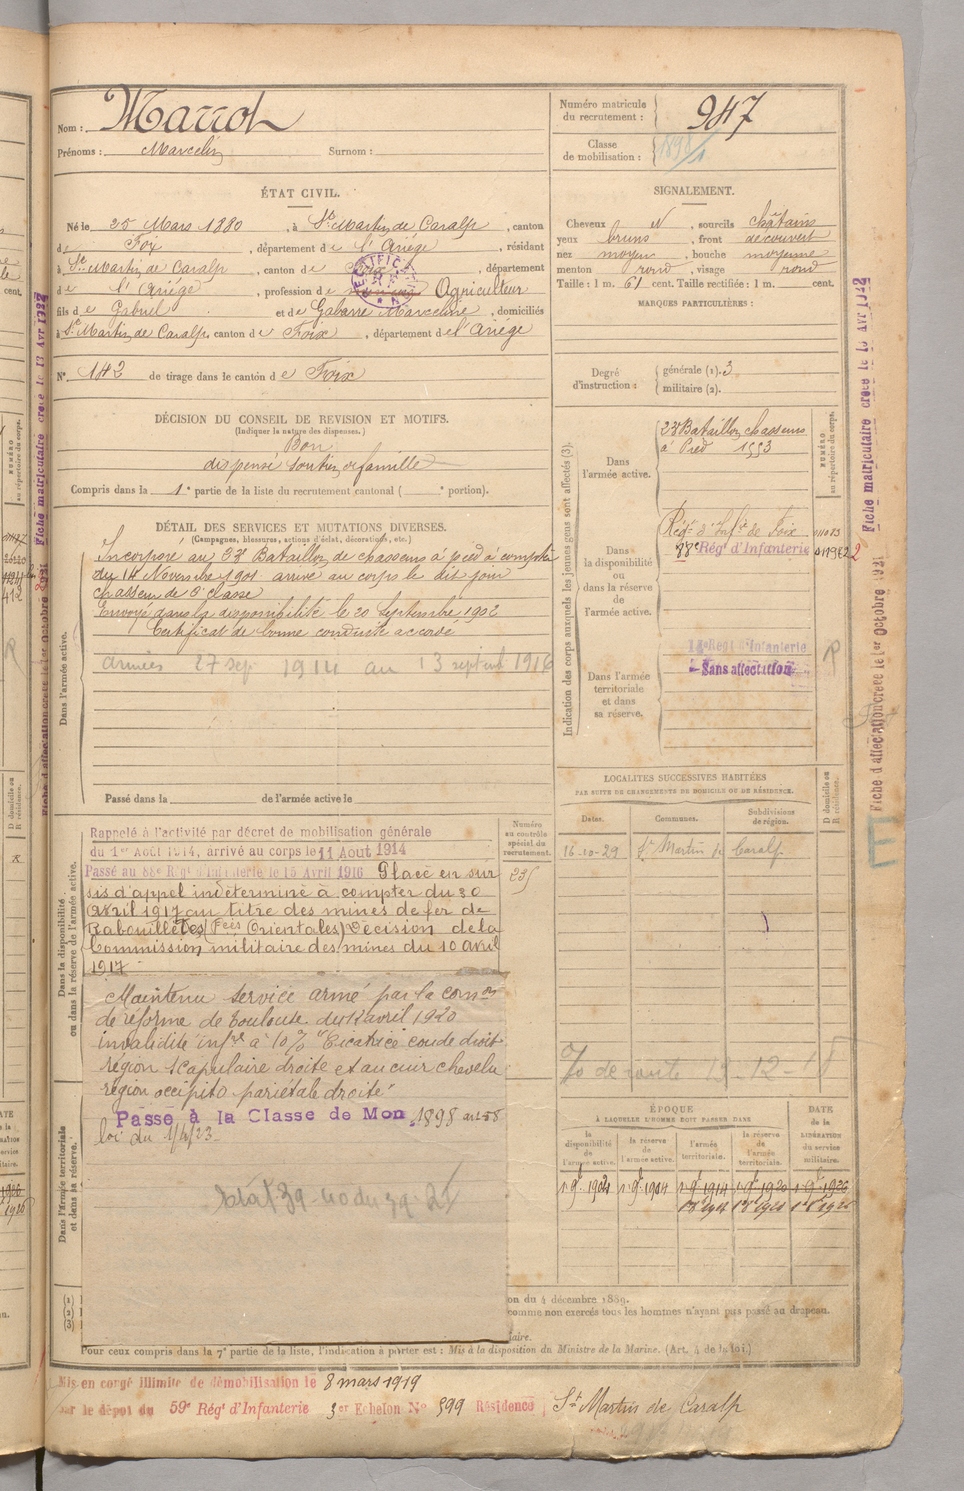 Nom : Marrot
Prénoms : Marcelin Surnom :
Numéro matricule du recrutement : 947
Classe de mobilisation : 1898/1
ÉTAT CIVIL.
Né le 25 Mars 1880, à St Martin de Caralp, canton
de Foix, département de l'Ariége, résidant
à St Martin de Caralp, canton de Foix, département
de l'Ariége, profession de Agriculteur
fils de Gabriel et de Gabarre Marceline, domiciliés
à St Martin de Caralp, canton de Foix, département de l'Ariége
N° 142 de tirage dans le canton de Foix
SIGNALEMENT.
Cheveux N, sourcils châtains
yeux bruns, front découvert
nez moyen, bouche moyenne
menton rond, visage rond
Taille : 1 m. 61 cent. Taille rectifiée : 1 m. cent.
MARQUES PARTICULIÈRES :
Degré d'instruction : générale (1). 3
militaire (2).
DÉCISION DU CONSEIL DE REVISION ET MOTIFS.
(Indiquer la nature des dispenses.)
Bon
dispensé soutien de famille
Compris dans la 1e partie de la liste du recrutement cantonal ( e portion).
DÉTAIL DES SERVICES ET MUTATIONS DIVERSES.
(Campagnes, blessures, actions d'éclat, décorations, etc.)
Dans l'armée active.
Incorporé au 23e Bataillon de chasseurs à pied à compter
du 14 Novembre 1901 arrivé au corps le dit jour
chasseur de 2e classe
Envoyé dans la disponibilité le 20 Septembre 1902
Certificat de bonne conduite accordé
armées 27 sep 1914 au 13 septemb 1916
Passé dans la de l'armée active le
Indication des corps auxquels les jeunes gens sont affectés (3).
NUMÉRO au répertoire du corps.
Dans l'armée active.
23e Bataillon chasseurs
à Pied 1553
Dans la disponibilité ou dans la réserve de l'armée active.
Régt d'Inf ie de Foix
88e Régt d'Infanterie
Dans l'armée territoriale et dans sa réserve.
Régt d'Infanterie
Sans affectation
R
Fiche matriculaire créée le 13 Avr 1922
Fiche d'affectation créée le 1er Octobre 1921
E
LOCALITÉS SUCCESSIVES HABITÉES
PAR SUITE DE CHANGEMENTS DE DOMICILE OU DE RÉSIDENCE.
Dates. Communes. Subdivisions de région. D domicile ou R résidence.
16-10-29 St Martin de Caralp
Dans la disponibilité ou dans la réserve de l'armée active.
Numéro au contrôle spécial du recrutement.
235
Rappelé à l'activité par décret de mobilisation générale
du 1er Août 1914, arrivé au corps le 11 Août 1914
Passé au 88e Régt d'Infanterie le 15 Avril 1916 Placé en sur
sis d'appel indéterminé à compter du 30
Avril 1917 au titre des mines de fer de
Rabouillèdes (Pées Orientales) Décision de la
Commission militaire des mines du 10 avril
1917
Maintenu service armé par la comon
de réforme de Toulouse du 12 avril 1920
invalidité infre à 10% "Cicatrice coude droit
région scapulaire droite et au cuir chevelu
région occipito pariétale droite"
Passé à la Classe de Mon 1898 art 58
loi du 1/4/23
Dans l'armée territoriale et dans sa réserve.
ÉPOQUE
À LAQUELLE L'HOMME DOIT PASSER DANS
DATE DE LA LIBÉRATION du service militaire.
la disponibilité de l'armée active. la réserve de l'armée active. l'armée territoriale. la réserve de l'armée territoriale.
1 9e 1904 1 9e 1914 1 9e 1920 1 9e 1926
(1)
(2)
(3)
on du 4 décembre 1889.
comme non exercés tous les hommes n'ayant pas passé au drapeau.
Pour ceux compris dans la 7e partie de la liste, l'indication à porter est : Mis à la disposition du Ministre de la Marine. (Art. 4 de la loi.)
Mis en congé illimité de démobilisation le 8 mars 1919
par le dépôt du 59e Régt d'Infanterie 3er Echelon N° 399 Résidence St Martin de Caralp